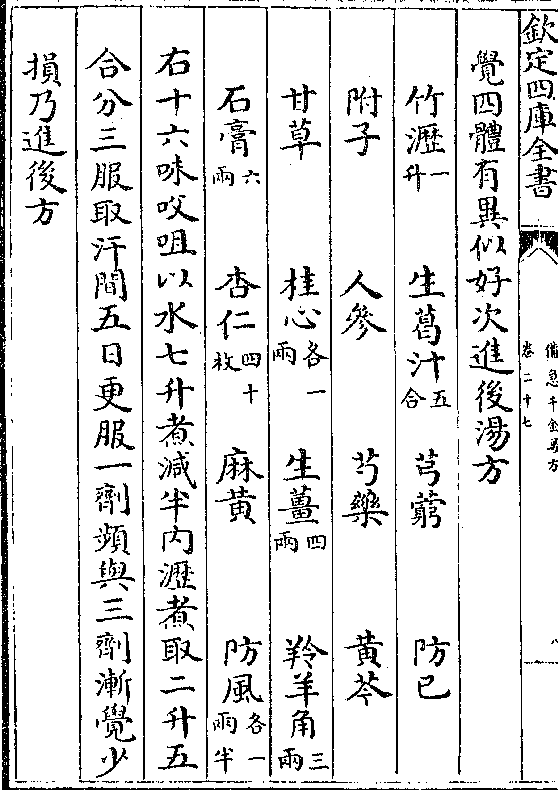 欽定四庫全書
備急千金要方
卷二十七
八
覺四體有異似好次進後湯方
竹瀝一升 生葛汁五合 芎藭 防已
附子 人參 芍藥 黃芩
甘草 桂心各一兩 生薑四兩 羚羊角三兩
石膏六兩 杏仁四十枚 麻黃 防風各一兩半
右十六味㕮咀以水七升煮減半内瀝煮取二升五
合分三服取汗間五日更服一劑頻與三劑漸覺少
損乃進後方